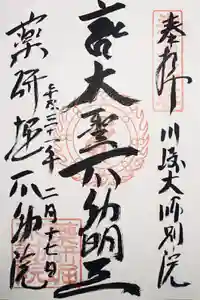 奉拝
川崎大師別院
大聖不動明王
平成二十一年
二月十七日
薬研堀不動院